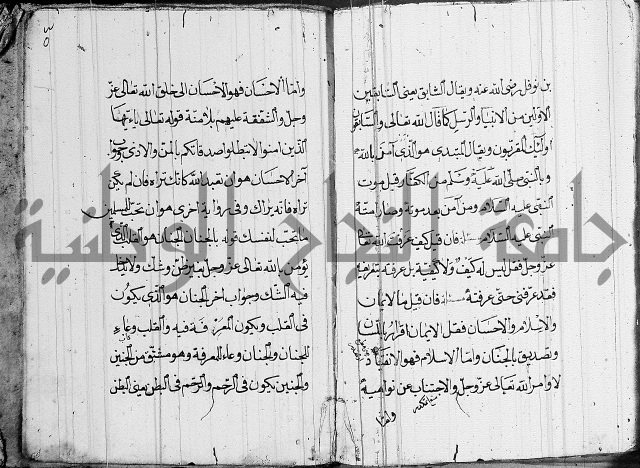 بن نوفل رضى الله عنه ويقال السابق يعنى السابقين
الاولين من الانبيا والرسل كما قال الله تعالى والسابقون
اولئك المقربون ويقال المبتدى هو الذى آمن بالله
وبالنبى صلى الله عليه وسلم من الكفار قبل موت
النبى عليه السلام ومن آمن بعد موته وصار امته
النبى عليه السلام مسئلة فان قيل كيف عرفت الله تعا
عز وجل فقل ليس له كيف ولا كيفية بل عرفته بتعريفه
فقد عرفنى حتى عرفته مسئلة فان قيل ما الايمان
والاسلام والاحسان فقل الايمان اقرار باللسان
وتصديق بالجنان واما الاسلام فهو الانقياد
لاوامر الله تعالى عز وجل والاجتناب عن نواهيه
واما
واما الاحسان فهو الاحسان الى خلق الله تعالى عز
وجل والشفقة عليهم بلا منة قوله تعالى ياءيها
الذين امنوا لا تبطلوا صدقاتكم بالمن والاذى وجواب
آخر الاحسان هو ان تعبد الله كانك تراه فان لم تكن
تراه فانه يراك وفى رواية اخرى هو ان تحب للمسلمين
ما تحب لنفسك قوله بالجنان الجنان هو القلب الذى
يؤمن بالله تعالى عز وجل من غير ظن وشك ولا
فيه الشك وجواب آخر الجنان هو الذى يكون
فى القلب ويكون المعرفة فيه والقلب وعاء
للجنان والجنان وعاء للمعرفة وهو مشتق من الجنين
والجنين يكون فى الرحم والرحم فى البطن يعنى البطن
جامعة النجاح الوطنية